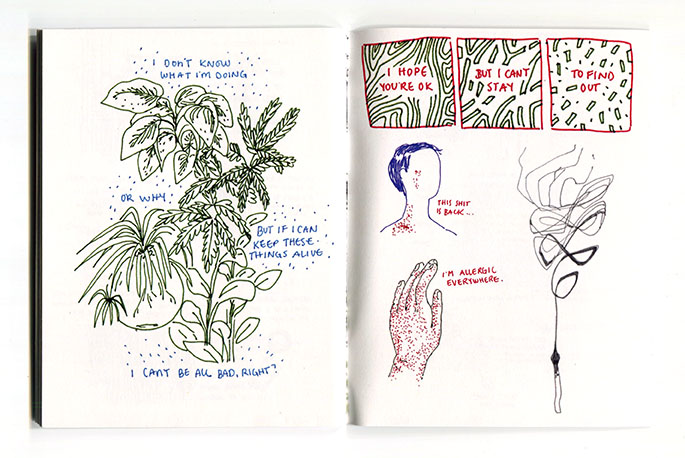 I DON'T KNOW
WHAT I'M DOING
OR WHY.
BUT IF I CAN
KEEP THESE
THINGS ALIVE.
I CAN'T BE ALL BAD, RIGHT?
I HOPE
YOU'RE OK
BUT I CAN'T
STAY
TO FIND
OUT.
THIS SHIT
IS BACK...
I'M ALLERGIC
EVERYWHERE.